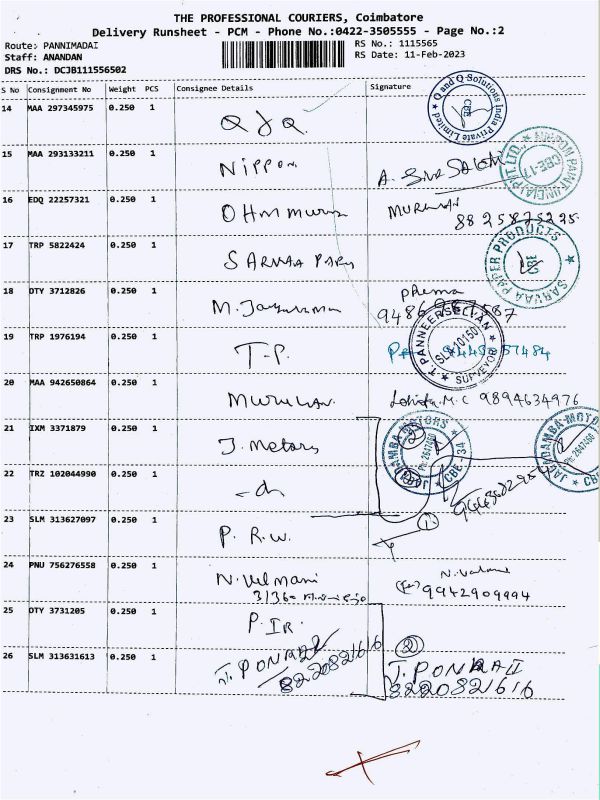 THE PROFESSIONAL COURIERS, Coimbatore
Delivery Runsheet - PCM - Phone No.:0422-3505555 - Page No.:2
Route: PANNIMADAI RS No.: 1115565
Staff: ANANDAN RS Date: 11-Feb-2023
DRS No.: DCJB111556502
S No Consignment No Weight PCS Consignee Details Signature
14 MAA 297345975 0.250 1 Q & Q Q and Q Solutions India Private Limited CBE
15 MAA 293133211 0.250 1 Nippon NIPPON PAINT (INDIA) PVT. LTD. CBE-17
16 EDQ 22257321 0.250 1 8825875295
17 TRP 5822424 0.250 1 SARVAA PAPER PRODUCTS
18 OTY 3712826 0.250 1 Phema
19 TRP 1976194 0.250 1 T.P. T. PANNEERSELVAN SLA 10150 SURVEYOR
20 MAA 942650864 0.250 1 Murugan M.C 9894634976
21 IXM 3371879 0.250 1 J. Motors JAGADAMBA MOTORS Ph: 2647460 CBE-34
22 TRZ 102044990 0.250 1 -do
23 SLM 313627097 0.250 1 P. R. W. 1
24 PNU 756276558 0.250 1 N. Velmani 9942909994
25 OTY 3731205 0.250 1 P. IR. 2
26 SLM 313631613 0.250 1 8220821616 8220821616